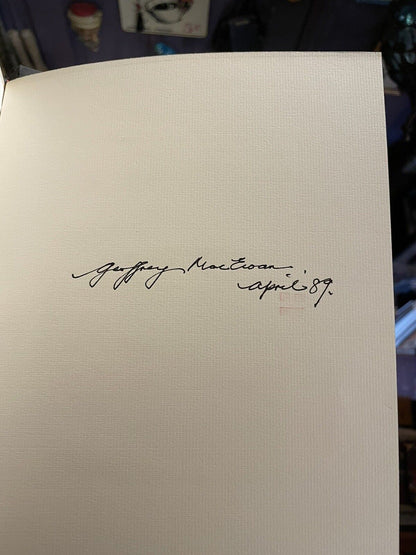 Geoffrey MacEwan
April '89.